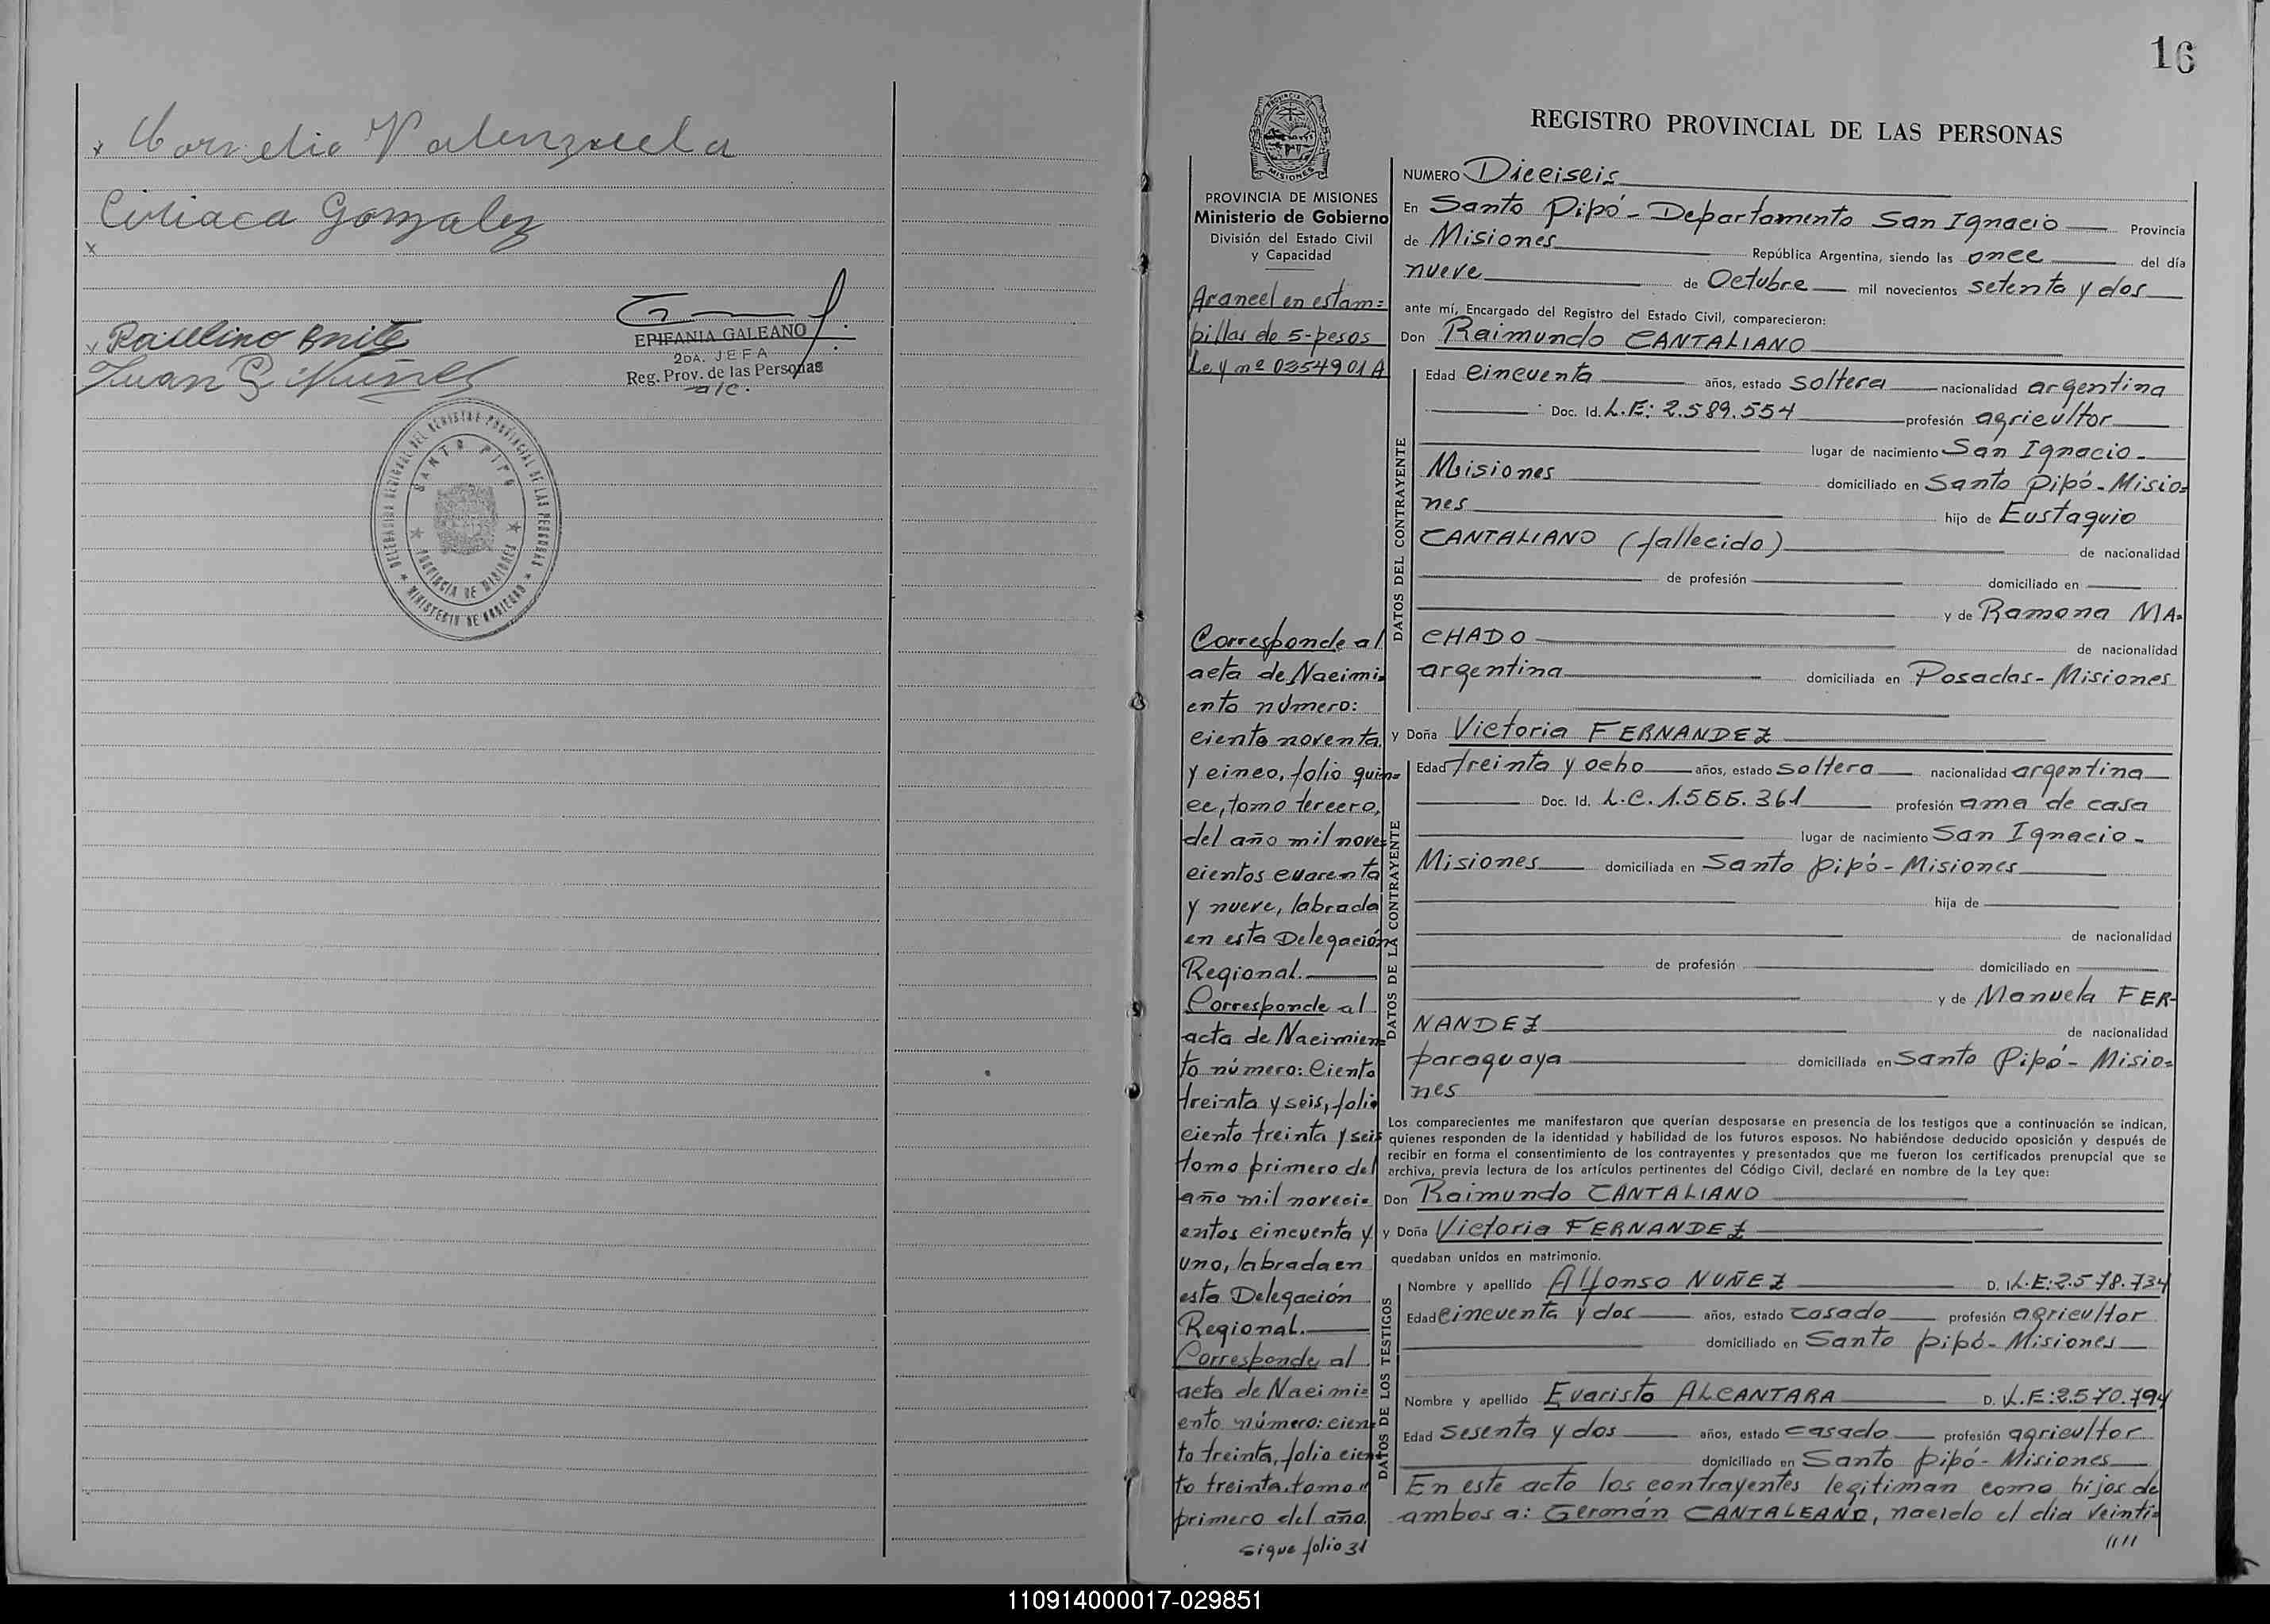 x Cornelio Valenzuela
Ciriaca Gonzalez
x
x Paulino Benitez
EPIFANIA GALEANO
2DA. JEFA
Reg. Prov. de las Personas
a/c.
Juan Nuñez
DELEGACION REGIONAL DEL REGISTRO PROVINCIAL DE LAS PERSONAS
SANTO PIPO
PROVINCIA DE MISIONES
MINISTERIO DE GOBIERNO
16
PROVINCIA DE MISIONES
Ministerio de Gobierno
División del Estado Civil
y Capacidad
Arancel en estam=
pillas de 5-pesos
Ley nº 0254901A
Corresponde al
acta de Nacimi=
ento número:
ciento noventa
y cinco, folio quin=
ce, tomo tercero,
del año mil nove=
cientos cuarenta
y nueve, labrada
en esta Delegación
Regional.
Corresponde al
acta de Nacimien=
to número: Ciento
treinta y seis, folio
ciento treinta y seis
tomo primero del
año mil noveci=
entos cincuenta y
uno, labrada en
esta Delegación
Regional.
Corresponde al
acta de Nacimi=
ento número: cien=
to treinta, folio cien=
to treinta, tomo
primero del año
sigue folio 31
REGISTRO PROVINCIAL DE LAS PERSONAS
NUMERO Dieciseis
En Santo Pipó - Departamento San Ignacio Provincia
de Misiones República Argentina, siendo las once del día
nueve de Octubre mil novecientos setenta y dos
ante mí, Encargado del Registro del Estado Civil, comparecieron:
Don Raimundo CANTALIANO
DATOS DEL CONTRAYENTE
Edad cincuenta años, estado soltera nacionalidad argentina
Doc. Id. L.E: 2.589.554 profesión agricultor
lugar de nacimiento San Ignacio -
Misiones domiciliado en Santo Pipó - Misio=
nes hijo de Eustaquio
CANTALIANO (fallecido) de nacionalidad
de profesión domiciliado en
y de Ramona MA=
CHADO de nacionalidad
argentina domiciliada en Posadas - Misiones
y Doña Victoria FERNANDEZ
DATOS DE LA CONTRAYENTE
Edad treinta y ocho años, estado soltera nacionalidad argentina
Doc. Id. L.C. 1.555.361 profesión ama de casa
lugar de nacimiento San Ignacio -
Misiones domiciliada en Santo Pipó - Misiones
hija de
de nacionalidad
de profesión domiciliado en
y de Manuela FER-
NANDEZ de nacionalidad
paraguaya domiciliada en Santo Pipó - Misio=
nes
Los comparecientes me manifestaron que querían desposarse en presencia de los testigos que a continuación se indican,
quienes responden de la identidad y habilidad de los futuros esposos. No habiéndose deducido oposición y después de
recibir en forma el consentimiento de los contrayentes y presentados que me fueron los certificados prenupcial que se
archiva, previa lectura de los artículos pertinentes del Código Civil, declaré en nombre de la Ley que:
Don Raimundo CANTALIANO
y Doña Victoria FERNANDEZ
quedaban unidos en matrimonio.
DATOS DE LOS TESTIGOS
Nombre y apellido Alfonso NUÑEZ D. I. L.E: 2.578.734
Edad cincuenta y dos años, estado casado profesión agricultor
domiciliado en Santo Pipó - Misiones
Nombre y apellido Evaristo ALCANTARA D. L.E: 2.570.794
Edad sesenta y dos años, estado casado profesión agricultor
domiciliado en Santo Pipó - Misiones
En este acto los contrayentes legitiman como hijos de
ambos a: Germán CANTALEANO, nacido el dia veinti=
////
110914000017-029851